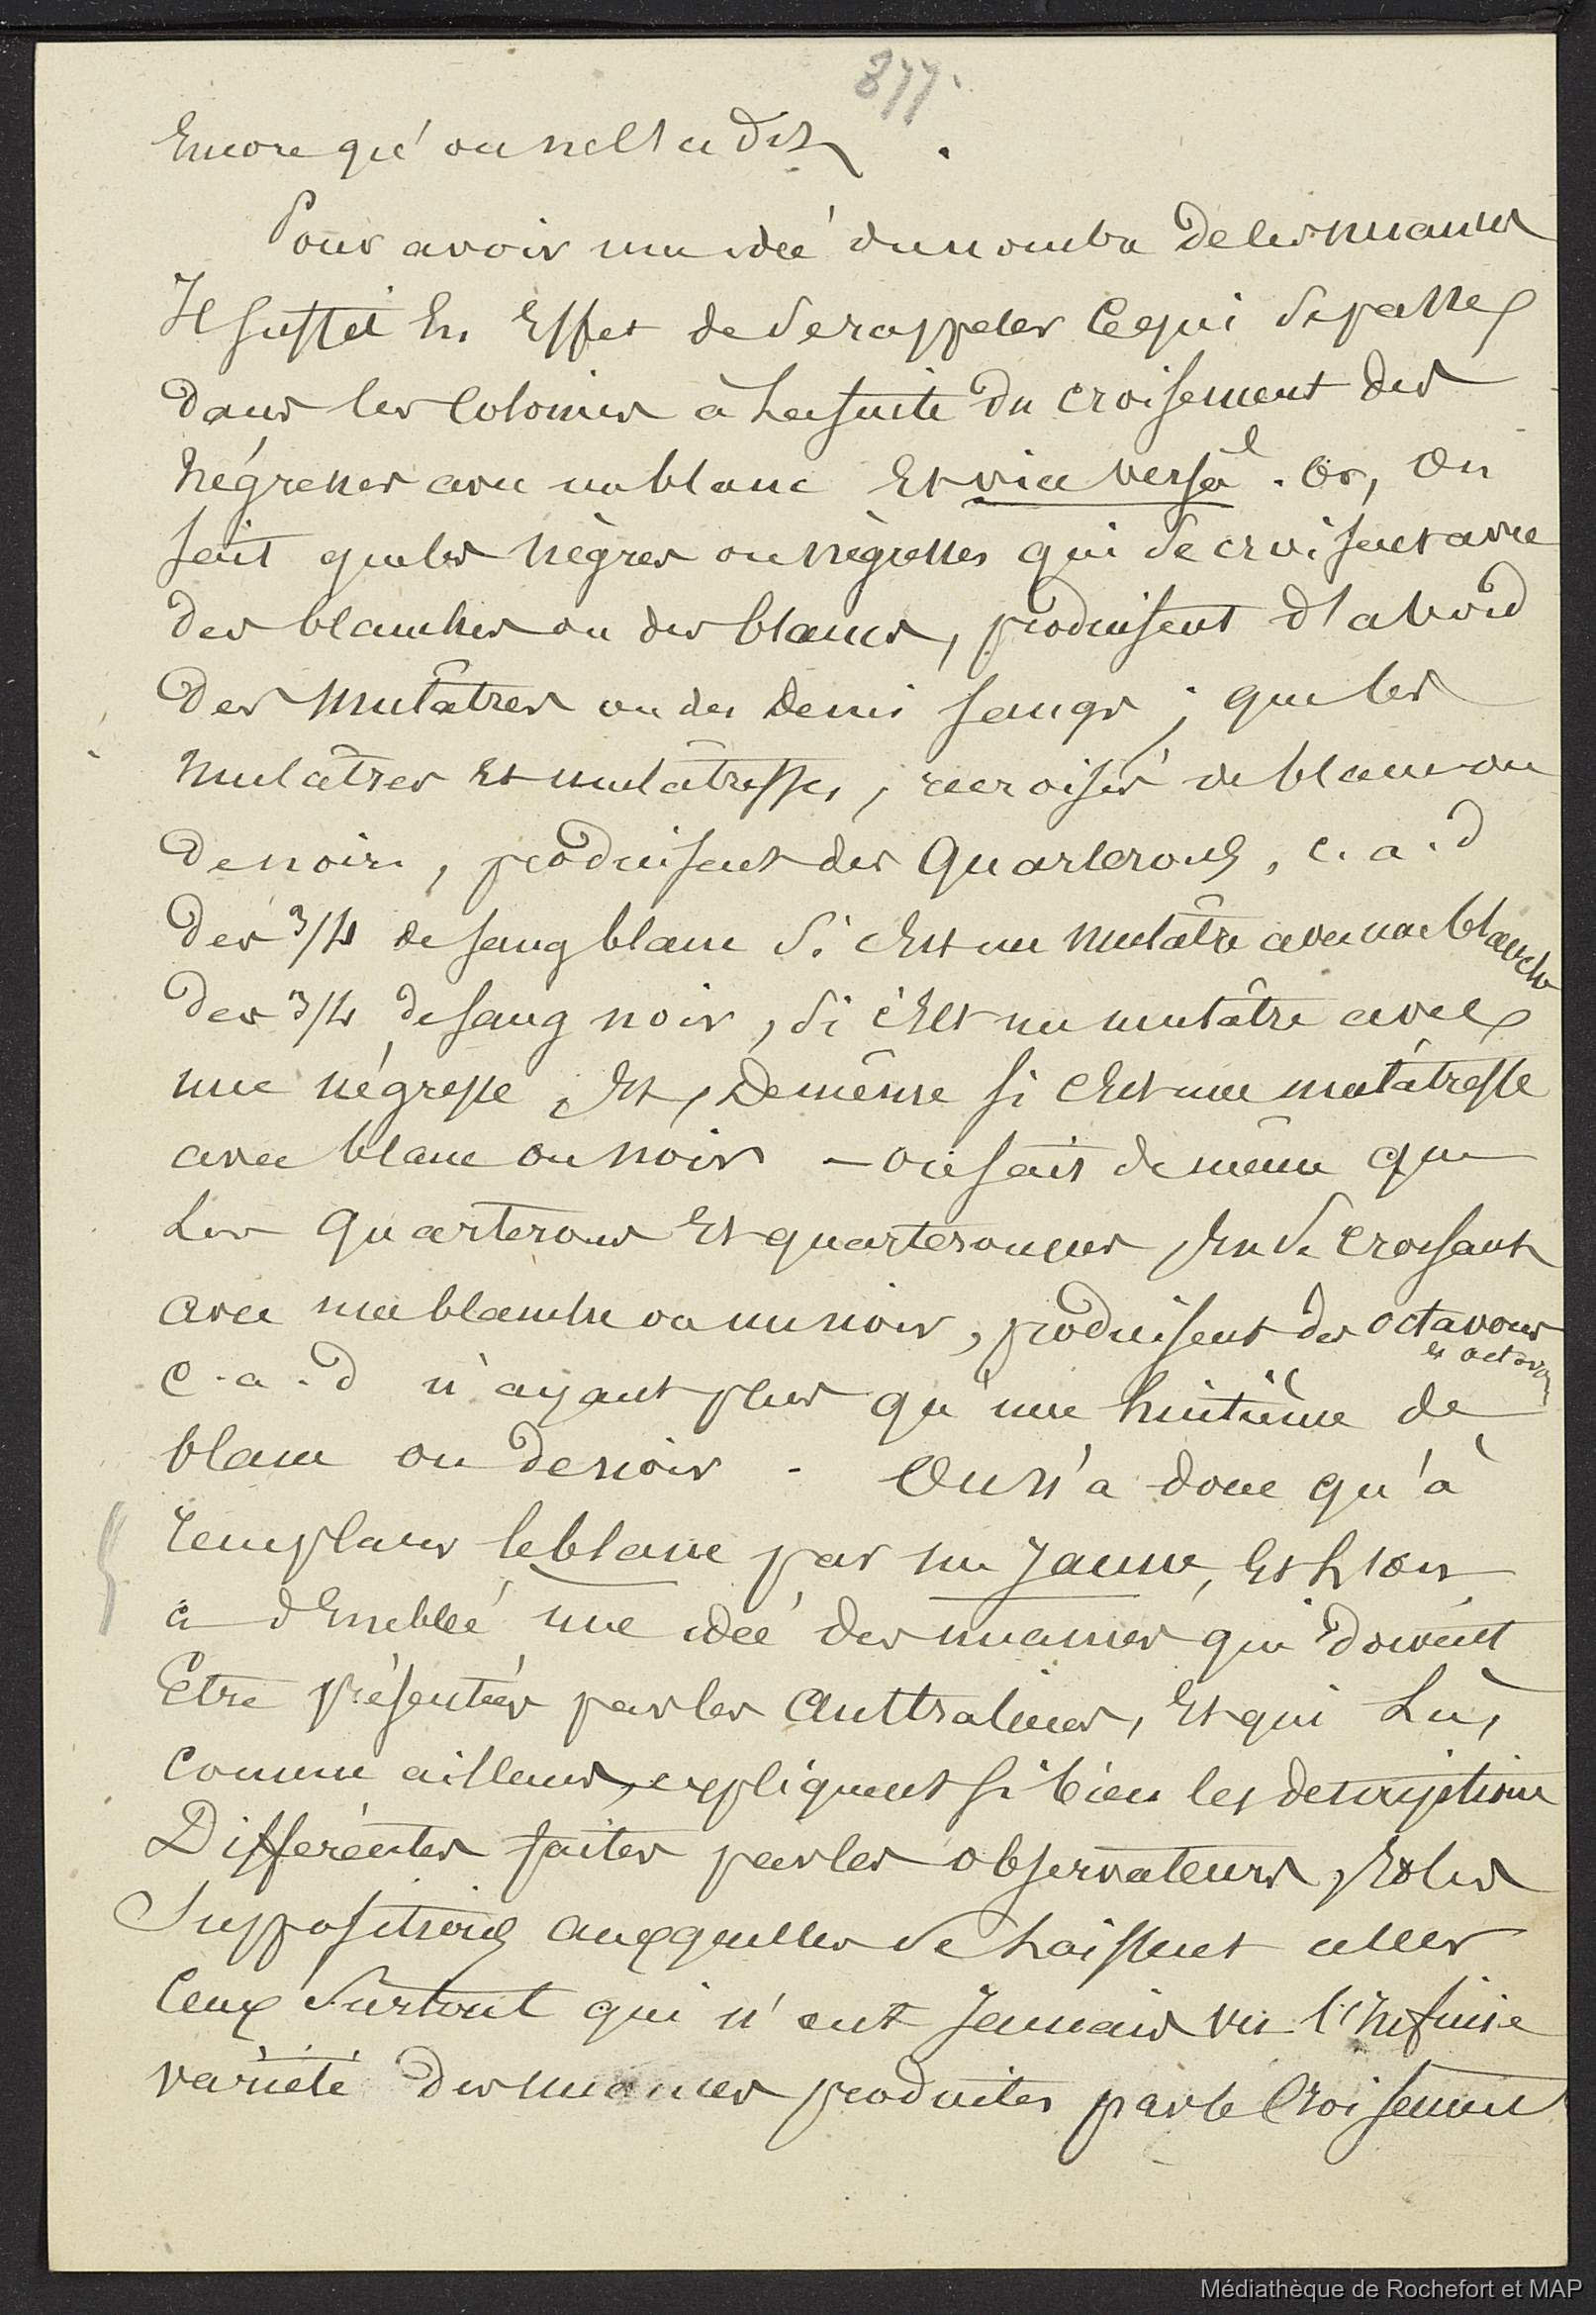 877.
Encore qu'on ne l'a dit.
Pour avoir une idée du nombre de les nuances
Il suffit En Effet de se rappeler ce qui se passe
dans les Colonies à la suite du croisement des
Négresses avec un blanc Et vice versâ. Or, On
sait que les nègres ou négresses qui se croisent avec
des blanches ou des blancs, produisent d'abord
des Mulâtres ou des demi sangs ; que les
Mulâtres Et mulâtresses, recroisés de blanc ou
de noir, produisent des Quarterons, c. a. d
des 3/4 de sang blanc si c'Est un mulâtre avec une blanche
des 3/4 de sang noir, si c'Est un mulâtre avec
une négresse, Et, de même si c'Est une mulâtresse
avec blanc ou noir — on sait de même que
Les Quarterons Et quarteronnes En se croisant
avec une blanche ou un noir, produisent des octavons
et octavon
c. a. d n'ayant plus qu'une huitième de
blanc ou de noir. On n'a donc qu'à
remplacer le blanc par un Jaune, Et l'on
a d'Emblée une idée des nuances qui doivent
Etre présentées par les Australiens, Et qui Là,
Comme ailleurs, expliquent si bien les descriptions
Différentes faites par les observateurs, Et les
Suppositions auxquelles se Laissent aller
Ceux Surtout qui n'ont Jamais vu l'Infinie
variété des nuances produites par le Croisement
Médiathèque de Rochefort et MAP